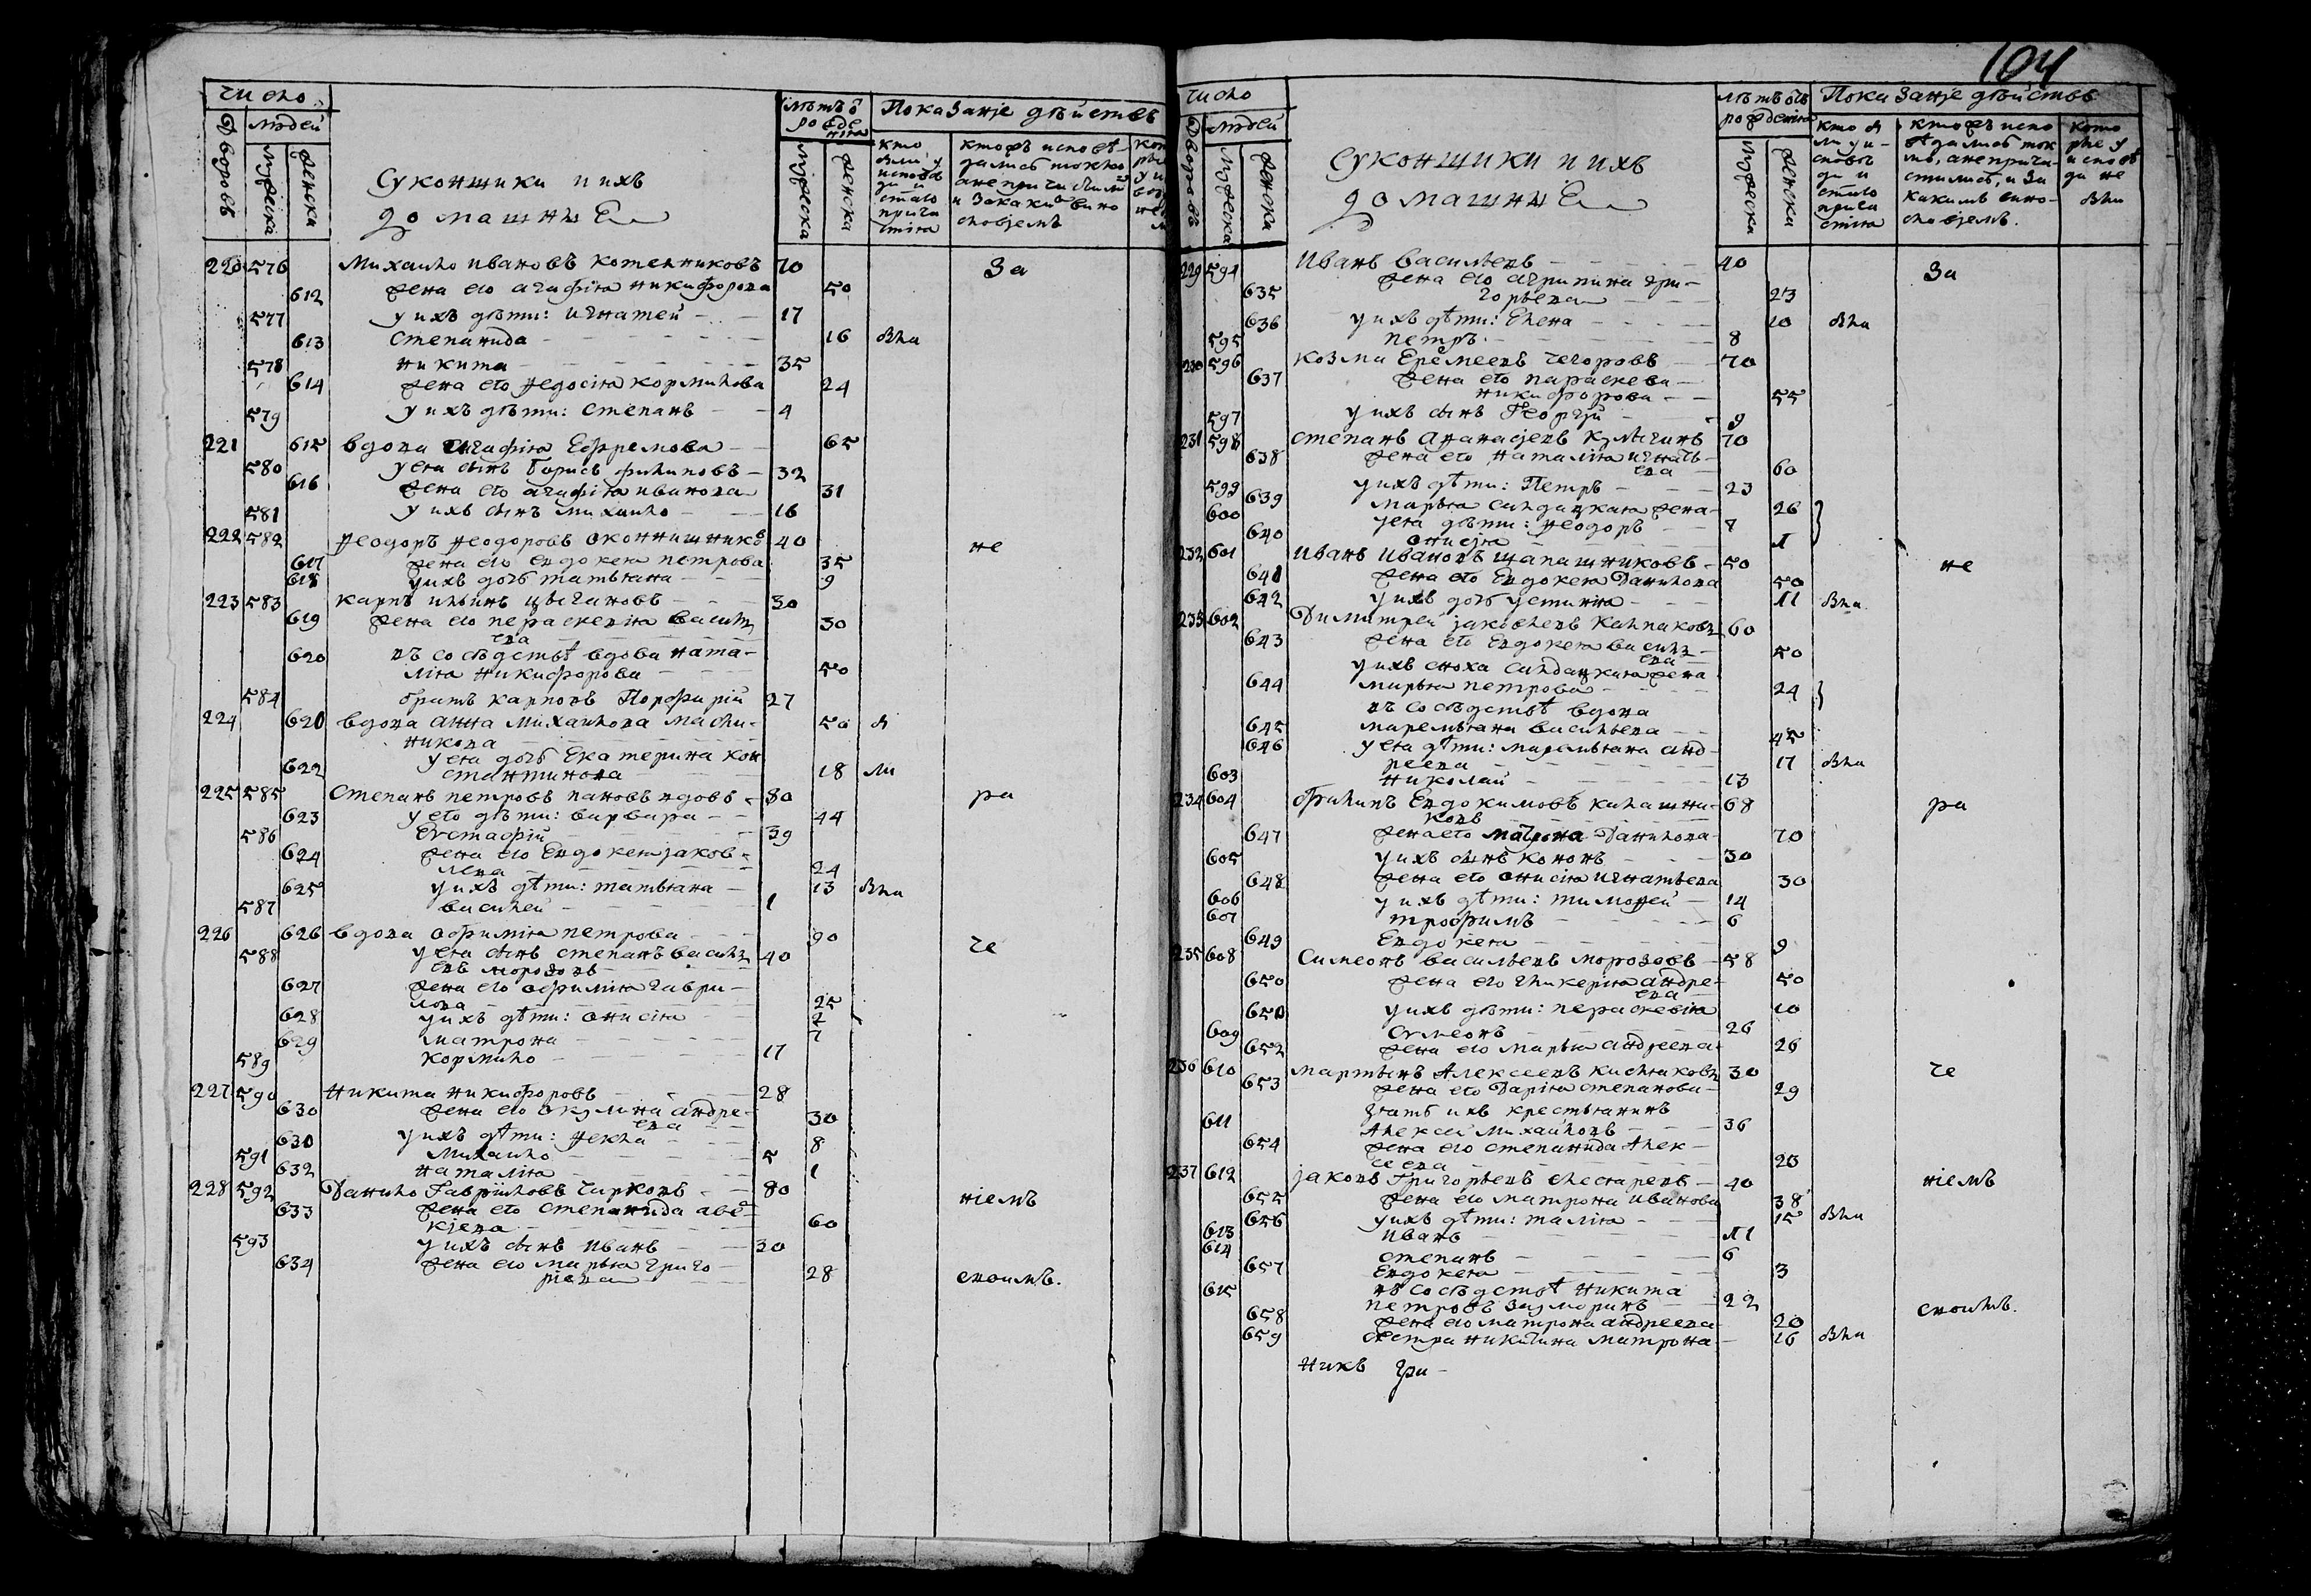 число
Дворовъ
людей
мужеска
женска
Суконщики и ихъ
домашныЕ
лѣтъ ѿ рожденія
мужеска
женска
Показанїе дѣйствъ
кто были у исповѣди и ст҃аго причастія
220 576 Михаило ивановъ котелниковъ 70 За
612 жена его агафія никифорова 50
577 у ихъ дѣти: игнатей 17
613 степанида 16 бы
578 никита 35
614 жена его ѳедосія кормилова 24
579 у ихъ дѣти: степанъ 4
221 615 вдова агафія Ефремова 65
580 у ея сынъ борисъ филиповъ 32
616 жена его агафія иванова 31
581 у ихъ сынъ михаило 16
222 582 ѳеодоръ ѳеодоровъ оконнишниковъ 40 не
617 жена его евдокея петрова 35
618 у ихъ дочь татьяна 9
223 583 карпъ ильинъ цыгановъ 30
619 жена его пераскевия василье
ва 30
620 въ сосѣдствѣ вдова ната-
лія никифорова 50
584 братъ карповъ Порфирїй 27
224 620 вдова анна михаилова масли-
никова 50 бы
622 у ея дочь Екатерина кон
стантинова 18 ли
225 585 Степанъ петровъ пановъ вдовъ 80 ра
623 у его дѣти: варвара 44
586 Еустафїй 39
624 жена его Евдокея јаков-
лева 24
625 у ихъ дѣти: татьяна 13 была
587 василей 1
226 626 вдова офимія петрова 90 че
588 у ея сынъ степанъ василь
евъ морозовъ 40
627 жена его офимія гаври-
лова 25
628 у ихъ дѣти: онисія 2
629 матрона 7
589 кормило 17
227 590 Никита никифоровъ 28
630 жена его окулина андре-
ева 30
630 у ихъ дѣти: ѳекла 8
591 михаило 5
632 наталія 1
228 592 Данило Гаврїиловъ чирковъ 80 нїемъ
633 жена его степанида авѣ-
кїева 60
593 у ихъ сынъ иванъ 30
634 жена его марья григо-
рїева 28 своимъ.
104
число
Дворовъ
людей
мужеска
женска
Суконщики и ихъ
домашныЕ
лѣтъ ѿ рожденія
мужеска
женска
Показанїе дѣйствъ
кто бы
ли у ис-
повѣ
ди и
ст҃аго
прича
стія
кто жъ испо
вѣдались ток
мо, а не прича-
стились, и за
какимъ вино-
словїемъ.
кото
рые у
исповѣ
ди не
были
229 594 Иванъ васильевъ 40 За
635 жена его агрипина гри-
горьева 23
636 у ихъ дѣти: Елена 10 была
595 петръ 8
230 596 козма Еремеевъ чегоровъ 70
637 жена его параскева
никифорова 55
597 у ихъ сынъ Георгїй 9
231 598 степанъ ананасїевъ кулыгинъ 70
638 жена его наталія игнать-
ева 60
599 у ихъ дѣти: Петръ 23
639 марья салдацкая жена 26
600 у ея дѣти: ѳеодоръ 7
640 онисїя
232 601 Иванъ ивановъ шапашниковъ 50 не
641 жена его Евдокея данилова 50
642 у ихъ дочь устиния 11 была
233 602 Димитрей јаковлевъ калпаковъ 60
643 жена его Евдокея василь-
ева 50
у ихъ сноха салдацкая жена
644 марья петрова 24
въ сосѣдствѣ вдова
645 маремьяна васильева 45
646 у ея дѣти: маремьяна анд-
реева 17 была
603 николай 13
234 604 филипъ Евдокимовъ калашни-
ковъ 68 ра
647 жена его матрона данилова 70
605 у ихъ сынъ кононъ 30
648 жена его онисія игнатьева 30
606 у ихъ дѣти: тимоѳей 14
607 трофимъ 6
649 Евдокея 9
235 608 Симеонъ васильевъ морозовъ 58
650 жена его гликерія андре-
ева 50
650 у ихъ дѣти: пераскевія 10
609 симеонъ 26
652 жена его марья андреева 26
236 610 мартынъ Алексеевъ кислаковъ 30 че
653 жена его Дарія степанова 29
зять ихъ крестьянинъ
611 Алексеи михайловъ 36
654 жена его степанида Алек-
сеева 20
237 612 јаковъ Григорьевъ слесаревъ 40 нїемъ
655 жена его матрона иванова 38
656 у ихъ дѣти: наталія 15 была
613 иванъ 11
614 степанъ 6
657 Евдокея 3
615 въ сосѣдствѣ никита
петровъ зауморинъ 22
658 жена его матрона андреева 20 своимъ.
659 сестра никитина матрона 16 была
Никъ Гри-